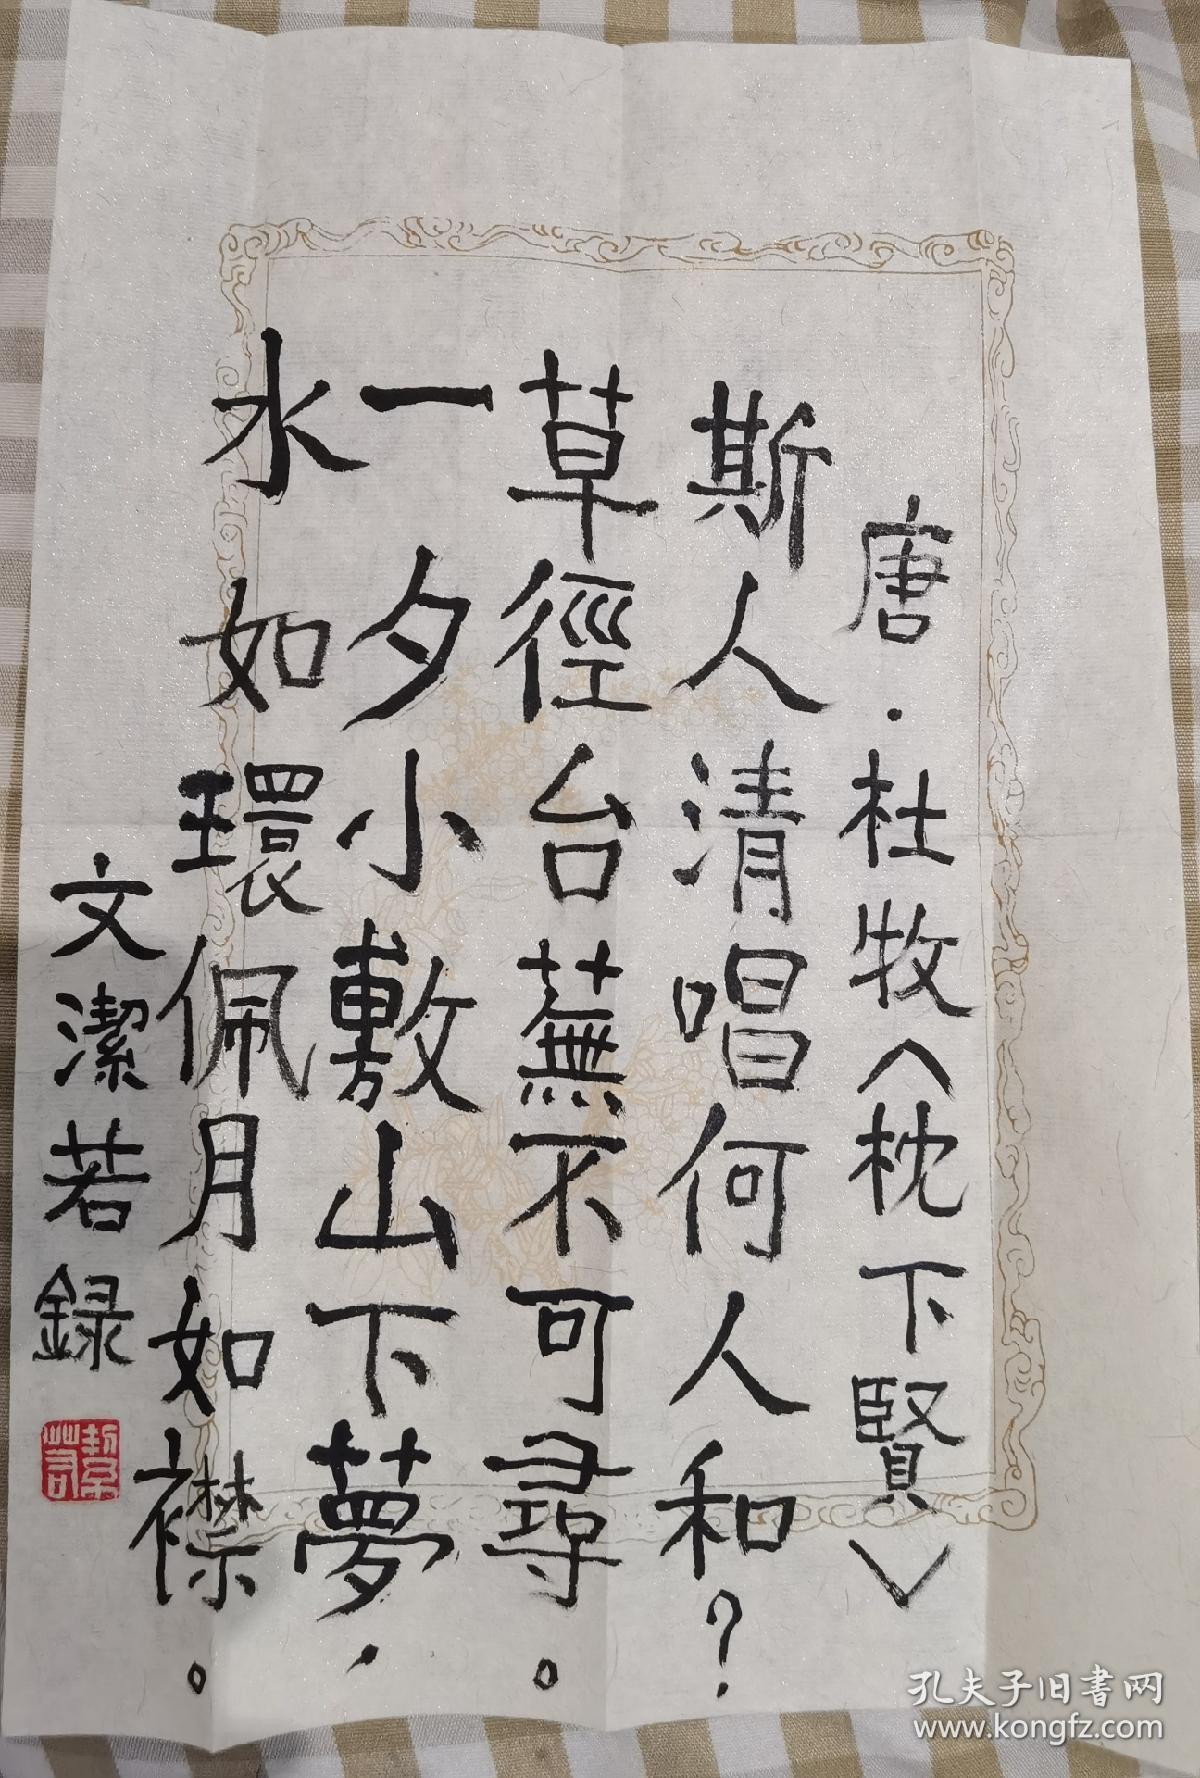 唐·杜牧〈枕下賢〉
斯人清唱何人和？
草徑台蕪不可尋。
一夕小敷山下夢，
水如環佩月如襟。
文潔若録
孔夫子旧書网
www.kongfz.com